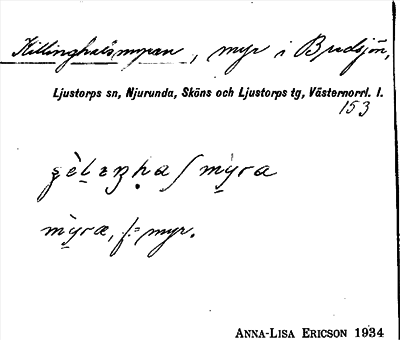 Killinghalsmyran, myr i Bredsjön,
Ljustorps sn, Njurunda, Sköns och Ljustorps tg, Västernorrl. l.
153
mỳra
mỳra, f. = myr.
ANNA-LISA ERICSON 1934